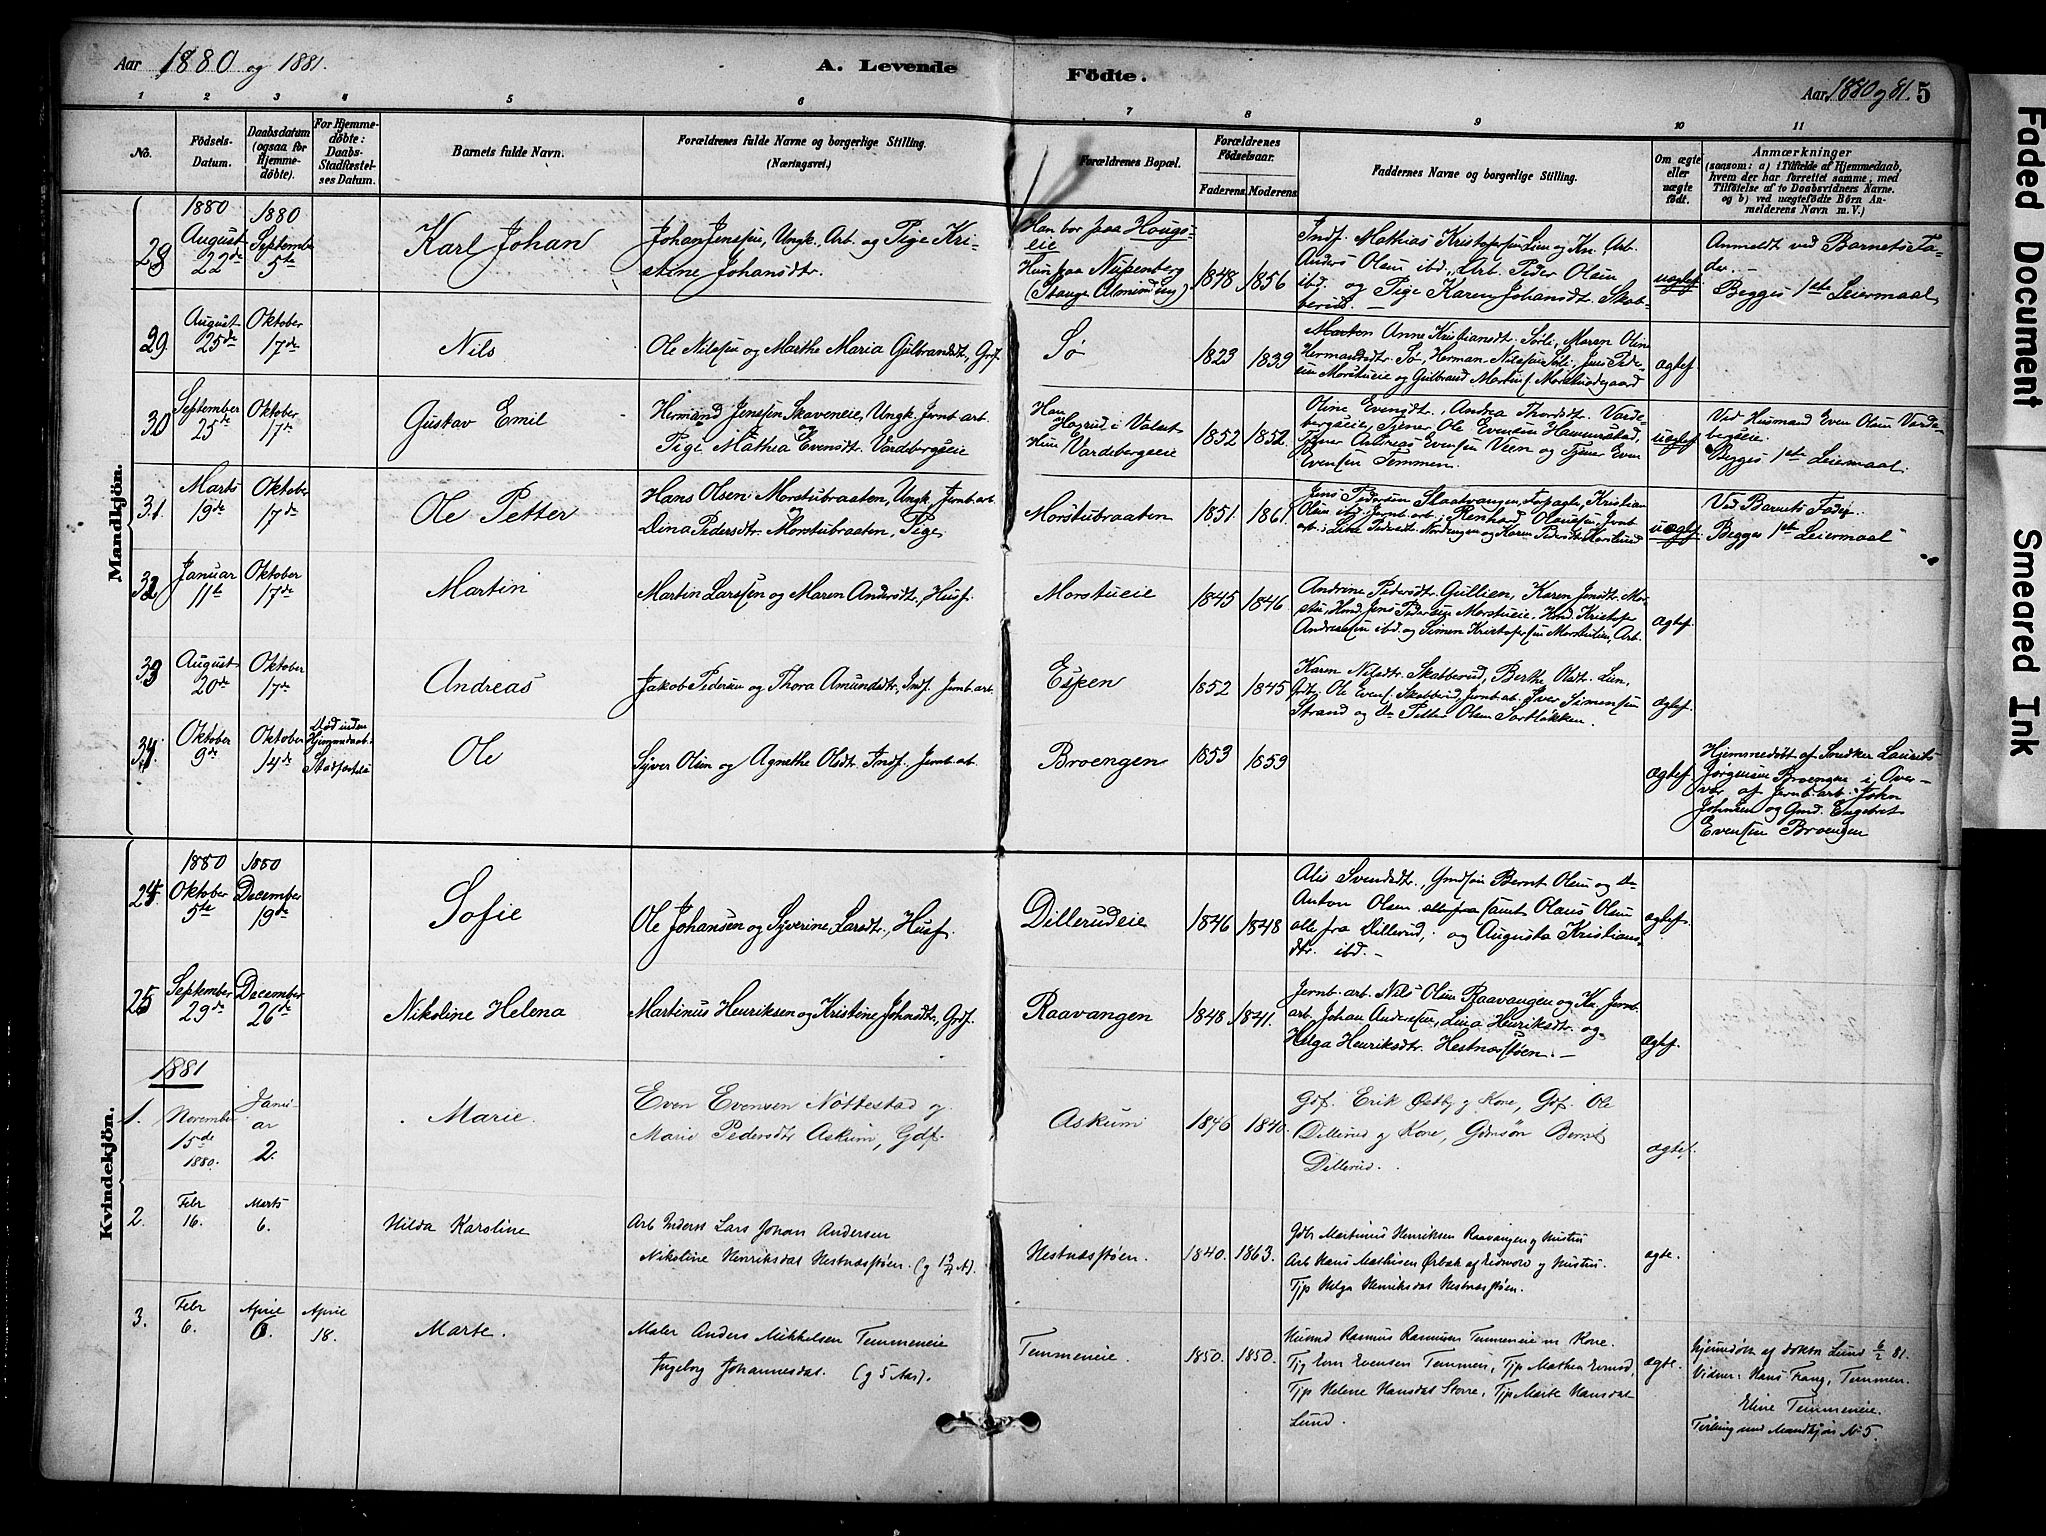 Aar 1880 og 1881.
A. Levende Födte.
Aar 1880 og 81. 5
1 2 3 4 5 6 7 8 9 10 11
No.
Födsels-Datum.
Daabsdatum (ogsaa for Hjemmedöbte).
For Hjemmedöbte: Daabs-Stadfæstelses Datum.
Barnets fulde Navn.
Forældrenes fulde Navne og borgerlige Stilling. (Næringsvei.)
Forældrenes Bopæl.
Forældrenes Födselsaar.
Faderens. Moderens.
Faddernes Navne og borgerlige Stilling.
Om ægte eller uægte födt.
Anmærkninger
(saasom: a) i Tilfælde af Hjemmedaab,
hvem der har forrettet samme, med
Tilföielse af to Daabsvidners Navne.
og b) ved uægtefödte Börn Anmelderens Navn m. V.)
Mandkjön.
28 1880 August 22de 1880 September 5te
Karl Johan
Johan Jenssen, Ungk., Arb. og Pige Kristine Johansdtr.
Han bor paa Hougseie
Hun paa Nupenberg
(Stange Almindng)
1848 1856
Indf. Mathias Kristofersen Lien og Kn. Arb.
Anders Olsen ibd., Arb. Peder Olsen
ibd. og Pige Karen Johansdt. Skabberud. —
uægtef.
Anmeldt ved Barnets Fader. —
Begges 1ste Leiermaal.
29 August 25de Oktober 17de
Nils
Ole Nilssen og Marthe Maria Gulbrandsdt., Grf.
Sø
1823 1839
Anne Kristiansdt. Sørli, Maren Olea
Hermansdtr. Sø, Herman Nilssen Sørli, Jens Pedersen Morstueie og Gulbrand Martins. Morstuødegaard
ægtef.
30 September 25de Oktober 17de
Gustav Emil
Hermand Jenssen Skaveneie, Ungk. Jernb. arb. og
Pige Mathea Evensdt. Vardebergseie
Han Hagrud i Valset
Hun Vardebergseie
1852 1852
Oline Evensdt., Andrea Thordsdt. Vardebergseie, Tjener Ole Evensen Hammerstad,
Tjener Andreas Evensen Veen og Tjener Even
Evensen Temmen.
uægtef.
Ved Husmand Even Olsen Vardebergseie.
Begges 1ste Leiermaal.
31 Marts 19de Oktober 17de
Ole Petter
Hans Olsen Morstubraaten, Ungk. Jernb. arb. og
Dina Pedersdtr. Morstubraaten, Pige
Morstubraaten
1851. 1861.
Jens Pedersen Slaatvangen, Forpagter, Kristian
Olsen ibd., Jernb. arb., Renhard Olaussen, Jernb.
arb., Line Pedersdt. Nordengen og Karen Pedersdt. Morstueeie
uægtef.
Ved Barnets Fader.
Begges 1ste Leiermaal
32 Januar 11te Oktober 17de
Martin
Martin Larssen og Maren Andersdt., Husf.
Morstueie
1845 1846
Andrine Pedersdt. Gullien, Karen Jensdt. Morstu, Husmd. Jens Pedersen Morstueie, Husmd. Kristofer
Andreassen ibd. og Simen Kristofersen Morstulien, Arb.
ægtef.
33 August 20de Oktober 17de
Andreas
Jakob Pedersen og Thora Amundsdt., Indf. Jernb. arb.
Espen
1852 1845
Karen Nilsdt. Skabberud, Berthe Olsdt. Lien,
Ole Evens. Skabberud, Jernb. ab. Iver Simensen
Strand og Do Petter Olsen Sortløkken.
ægtef.
34. Oktober 9de Oktober 14de
Død inden Hjemmedaab. Stadfæstelse
Ole
Syver Olsen og Agnethe Olsdt. Indf. Jernb. ab.
Broengen
1853 1859
ægtef.
Hjemmedøbt af Snedker Laurits
Jørgensen Broengen i Overvær af Jernb. arb. John
Johnsen og Gmd. Engebret
Evensen Broengen
Kvindekjön.
24. 1880 Oktober 5te 1880 December 19de
Sofie
Ole Johansen og Syverine Larsdtr., Husf.
Dillerudeie
1846 1848
Alis Svendsdtr., Gmdsøn Bernt Olsen og Do
Anton Olsen alle fra samt Olaus Olsen
alle fra Dillerud, og Augusta Kristiansdtr. ibd. —
ægtef.
25 September 29de December 26de
Nikoline Helena
Martinus Henriksen og Kristine Johnsdtr., Gdf.
Raavangen
1848. 1841.
Jernb. arb. Nils Olsen Raavangen og Kn. Jernb.
arb. Johan Anderssen, Lina Henriksdtr. og
Helga Henriksdtr. Hestnæsstøen. —
ægtef.
1881
1. November 15de 1880. Januar 2.
Marie
Even Evensen Nøttestad og
Marie Pedersdtr Askum, Gdf.
Askum
1846 1840.
Gdf. Erik Østby og Kone, Gdf. Ole
Dillerud og Kone, Gdmsøn Bernt
Dillerud.
ægtef.
2. Febr 16. Marts 6.
Hilda Karoline
Arb Inderst Lars Johan Andersen
Nikoline Henriksdat Hestnæsstøen.
Hestnæsstøen.
1840. 1863.
Gdbr Martinus Henriksen Raavangen og Hustru
Arb Hans Mathisen Ørbæk af Eidsvold og Hustru.
Tjp Helga Henriksdat Hestnæsstøen.
ægte.
3. Febr 6. April 6. April 18.
Marte.
Maler Anders Mikkelsen Temmeneie
Ingeborg Johannesdat. (g 5 Aar).
Temmeneie.
1850. 1850.
Husmd Rasmus Rasmusen Temmeneie m Kone.
Tjg Even Evensen Temmen, Tjp Mathea Evensd,
Tjp Helene Hansdat Storre, Tjp Marte Hansdat
Lund.
ægte.
Hjemdøbt af doktor Lund 6/2 81.
Vidner: Hans Frang, Temmen.
Eline Temmeneie.
Tvilling med Mandkjøn No 5.
Faded Document
Smeared Ink